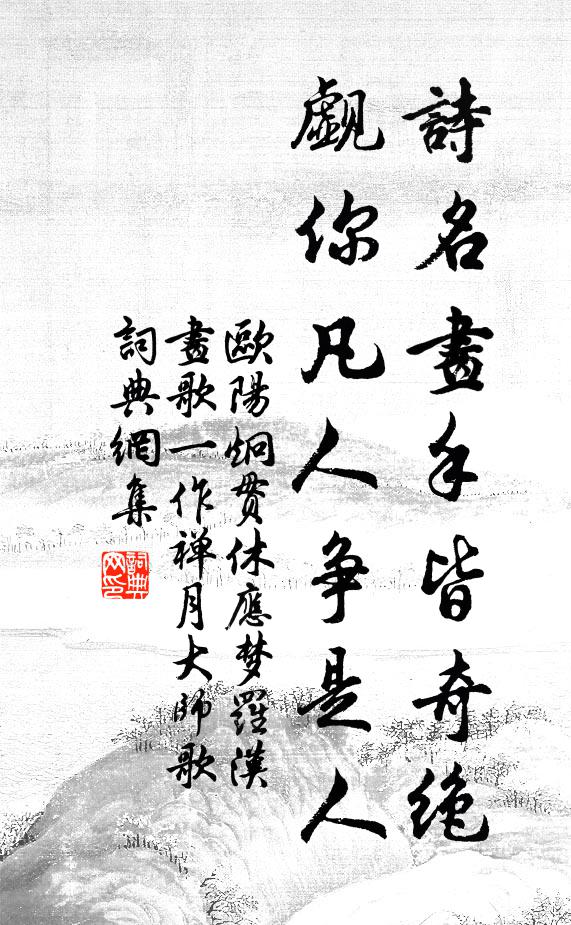 詩名畫手皆奇絕
觑你凡人爭是人
歐陽炯貫休應梦羅漢
畫歌一作禅月大師歌
詞典網集
詞典
网印